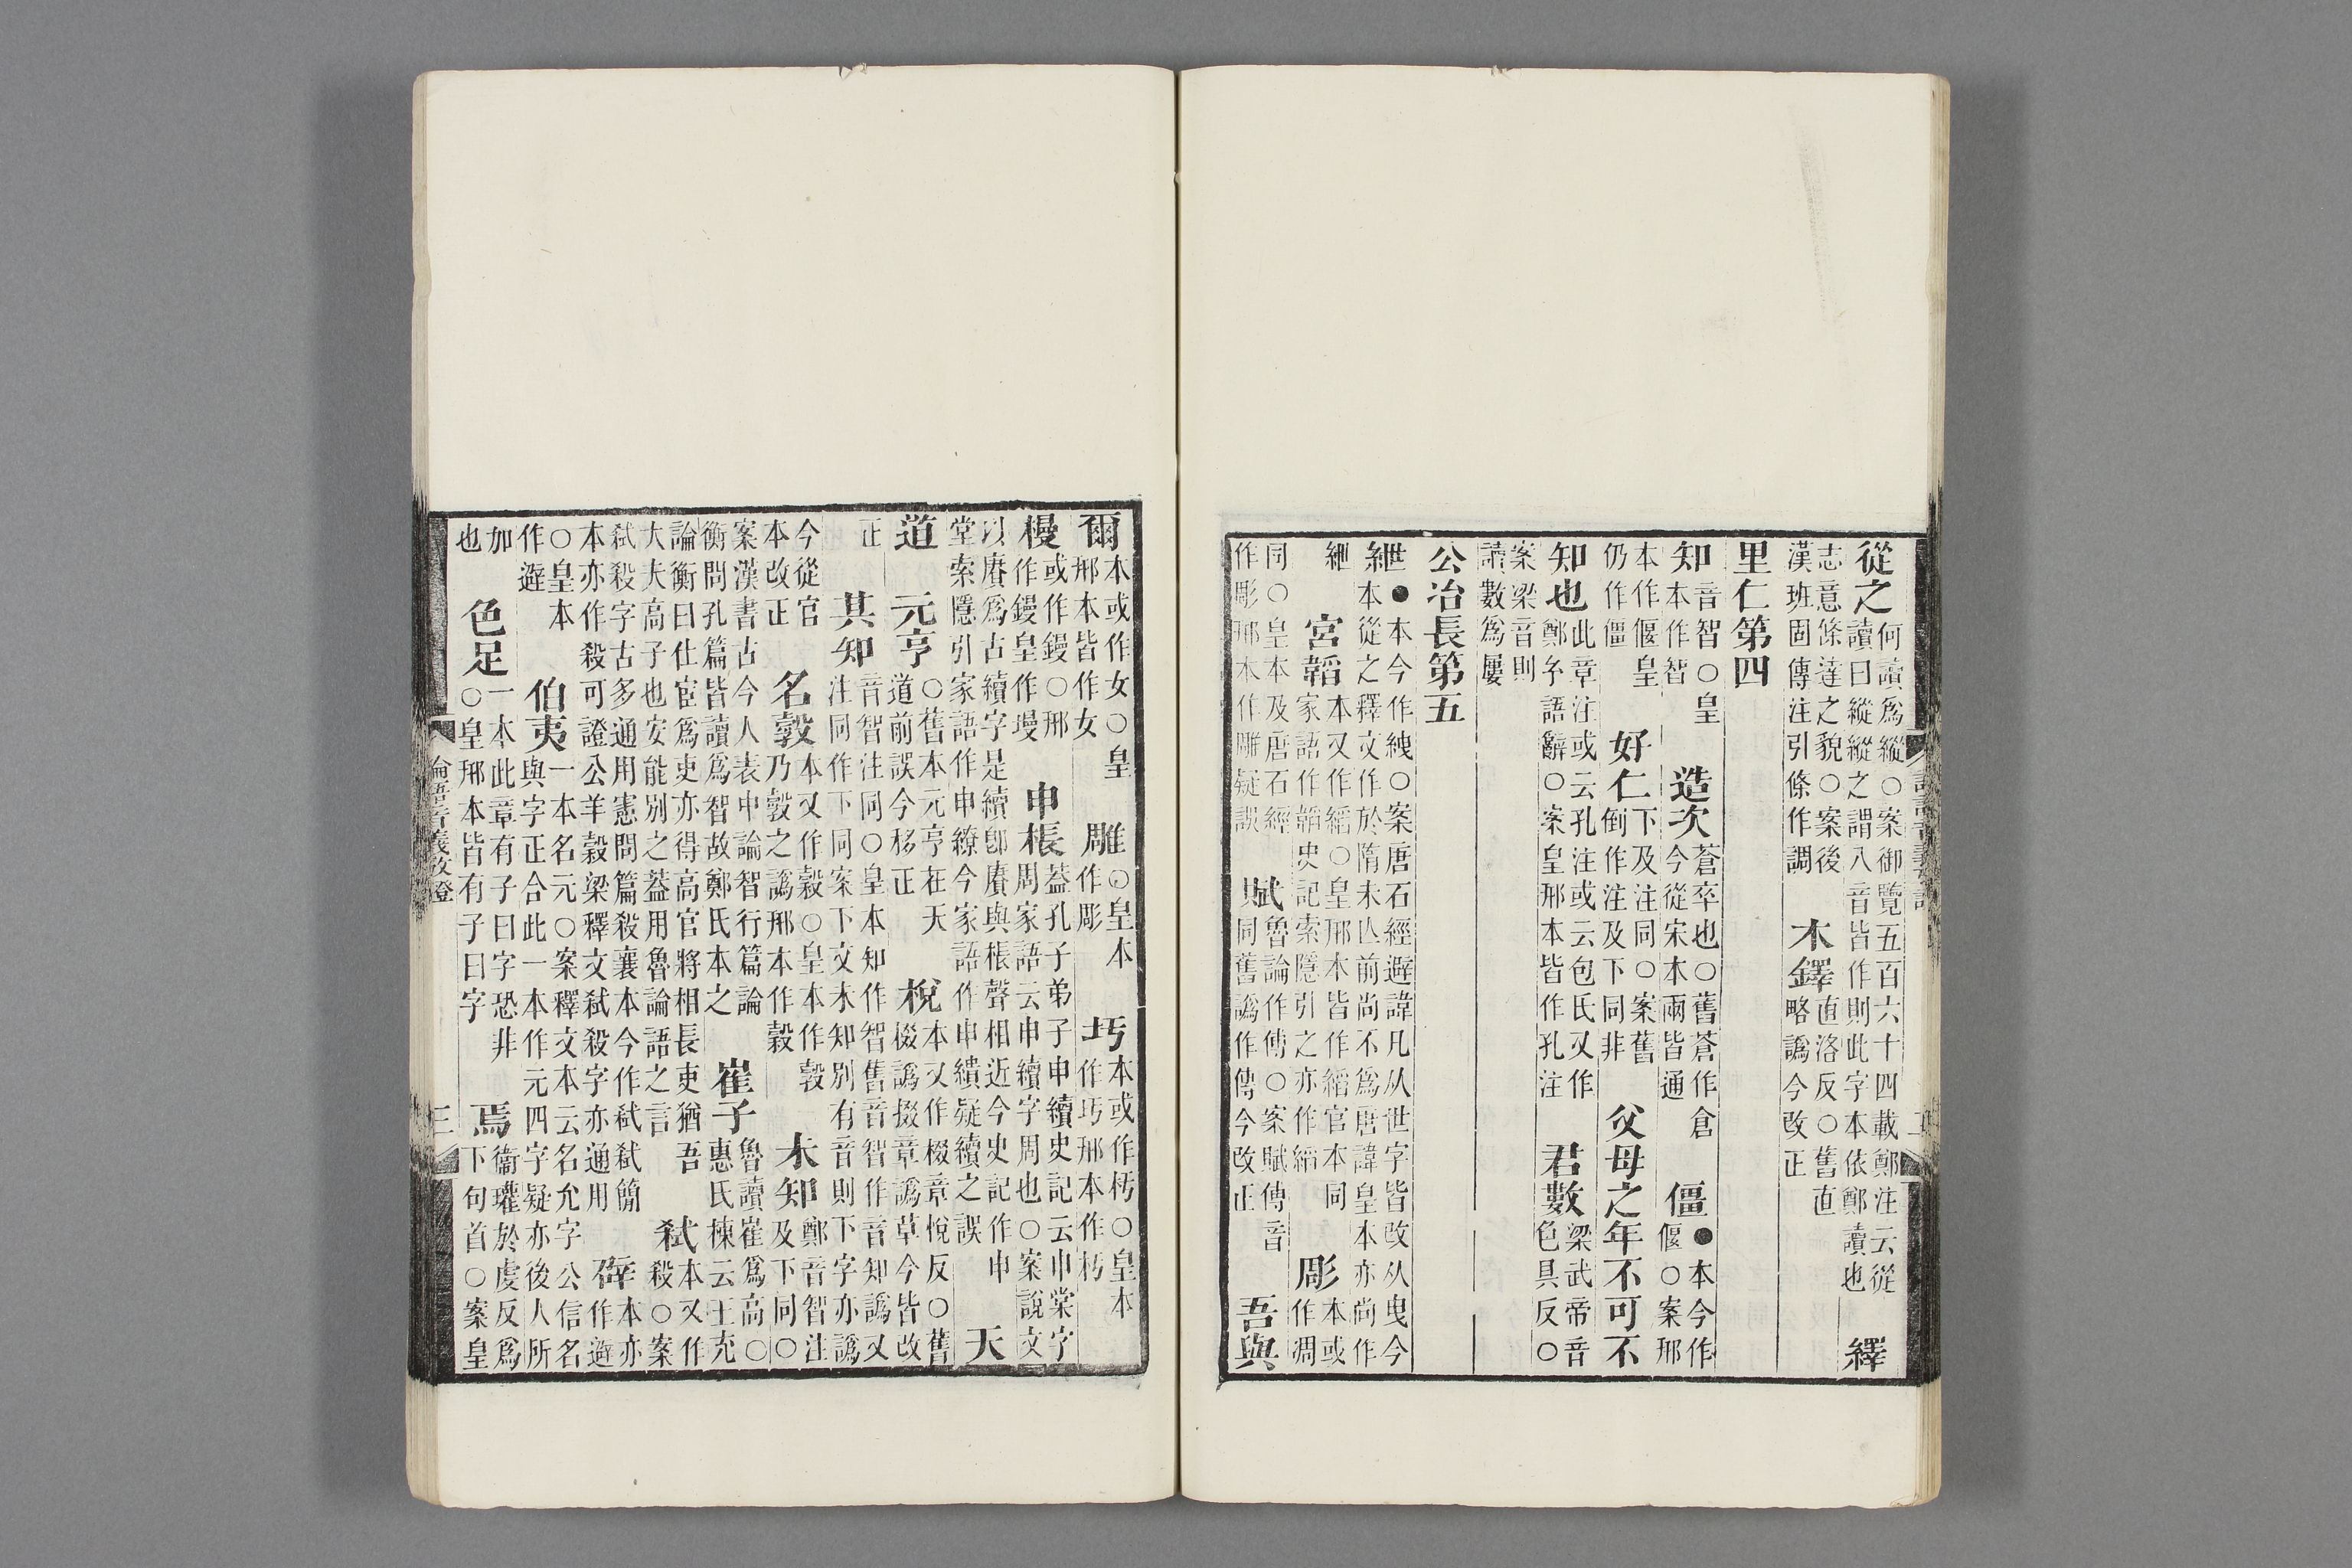 從之何讀爲縱○案御覽五百六十四載鄭注云從讀曰縱縱之謂八音皆作則此字本依鄭讀也 繹
志意條達之貌○案後漢班固傳注引條作調 木鐸直洛反○舊直略譌今改正
里仁第四
知音智○皇本作智 造次蒼卒也○舊蒼作倉今從宋本兩皆通 僵●本今作偃○案邢
本作偃皇仍作僵 好仁下及注同○案舊倒作注及下同非 父母之年不可不
知也此章注或云孔注或云包氏又作鄭𤣥語辭○案皇邢本皆作孔注 君數梁武帝音色具反○
案梁音則讀數爲屢
公冶長第五
紲●本今作絏○案唐石經避諱凡从世字皆改从曳今本從之釋文作於隋未亾前尚不爲唐諱皇本亦尚作
紲 宮韜本又作縚○皇邢本皆作縚官本同家語作韜史記索隱引之亦作縚 彫本或作凋
同○皇本及唐石經作彫邢本作雕疑誤 賦魯論作傅○案賦傅音同舊譌作傳今改正 吾與
爾本或作女○皇邢本皆作女 雕○皇本作彫 圬本或作杇○皇本作圬邢本作杇
㮟或作鏝○邢作鏝皇作墁 申棖蓋孔子弟子申續史記云申棠字周家語云申續字周也○案說文
以賡爲古續字是續卽賡與棖聲相近今史記作申堂索隱引家語作申繚今家語作申績疑續之誤 天
道 元亨○舊本元亨在天道前誤今移正 梲本又作棳章悅反○舊棳譌掇章譌草今皆改
正 其知音智注同○皇本知作智舊音智作音知譌又注同作下同案下文未知別有音則下字亦譌
今從官本改正 名㝅本又作穀○皇本作㝅乃㝅之譌邢本作穀 未知鄭音智注及下同○
案漢書古今人表中論智行篇論衡問孔篇皆讀爲智故鄭氏本之 崔子魯讀崔爲高○惠氏棟云王充
論衡曰仕宦爲吏亦得高官將相長吏猶吾大夫高子也安能別之蓋用魯論語之言 弑本又作殺○案
弑殺字古多通用憲問篇殺襄本今作弑弑簡本亦作殺可證公羊穀梁釋文弑殺字亦通用 辟本亦作避
○皇本作避 伯夷一本名元○案釋文本云名允字公信名與字正合此一本作元四字疑亦後人所
加也 色足一本此章有子曰字恐非○皇邢本皆有子曰字 焉衞瓘於虔反爲下句首○案皇
論語音義攷證
三